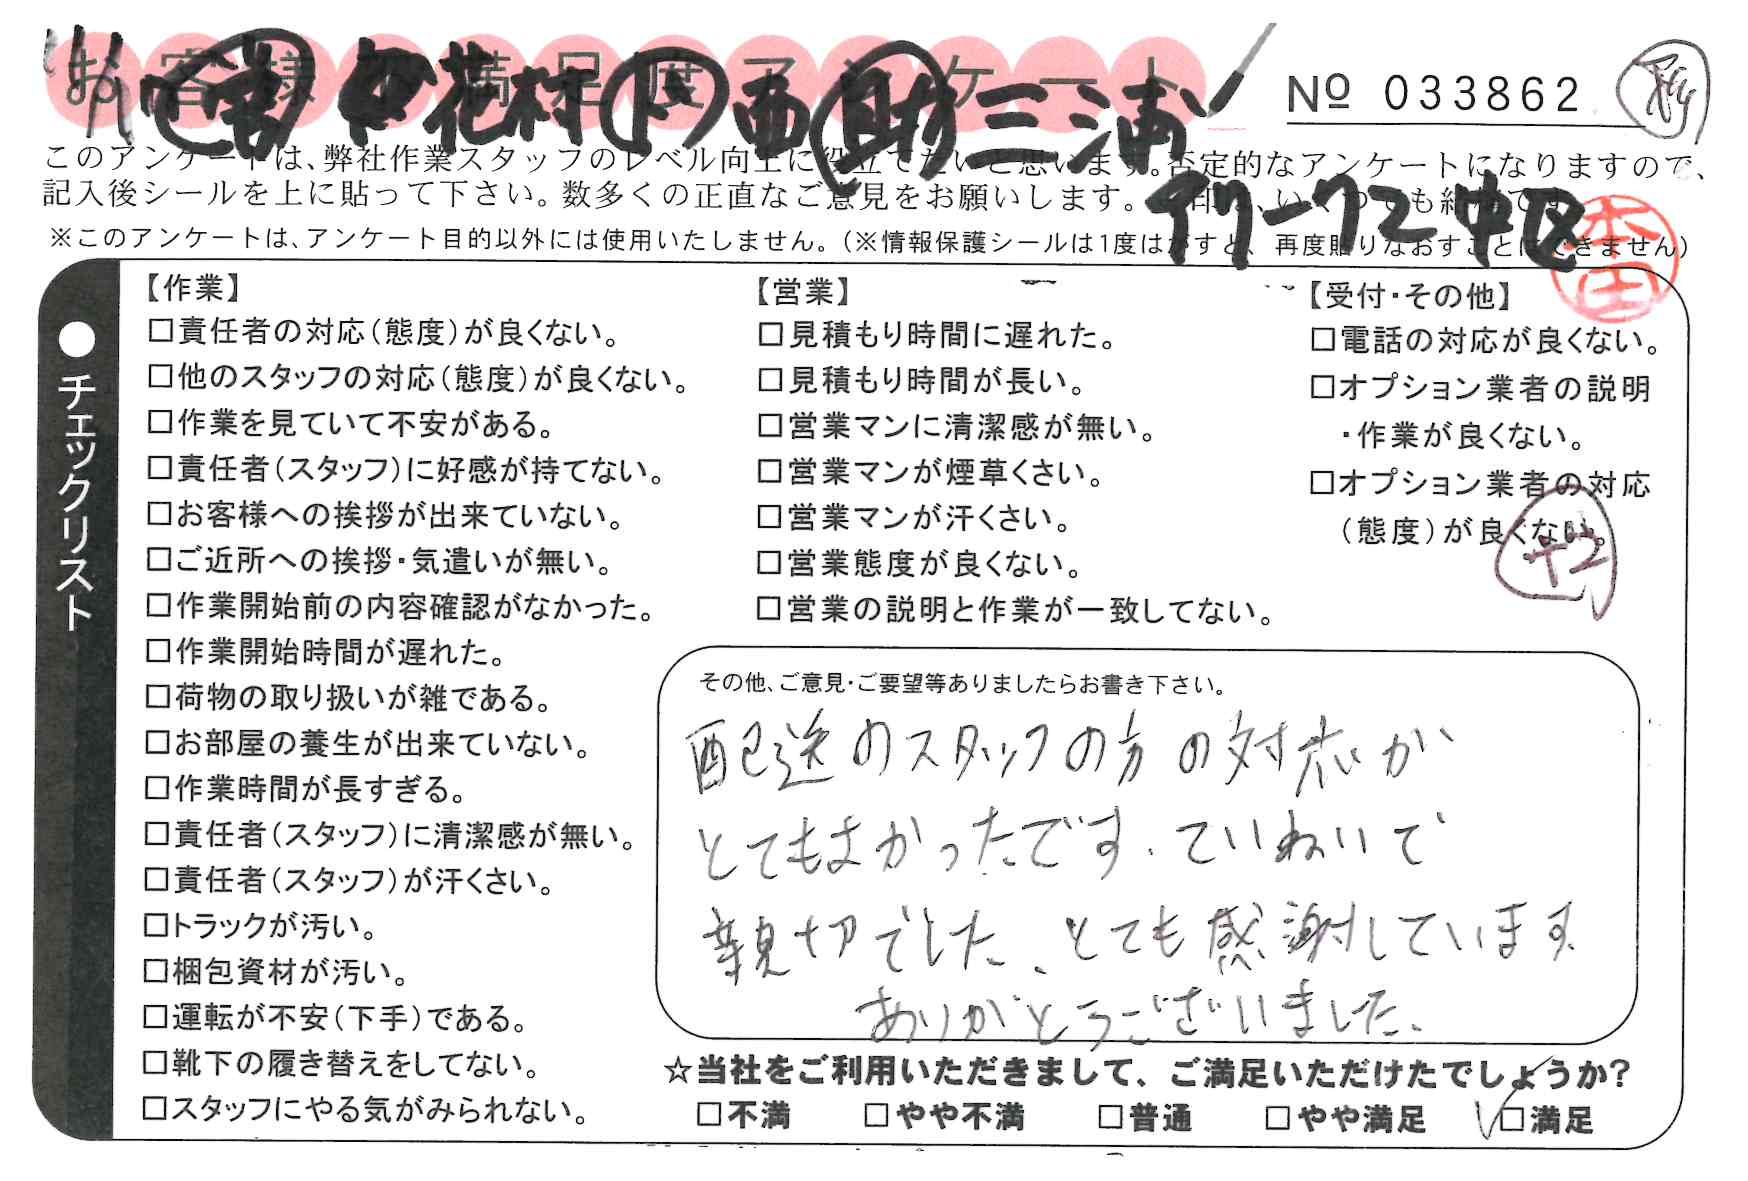 お客様の満足度アンケート
中 花村 下 西 助 三浦
№ 033862
このアンケートは、弊社作業スタッフのレベル向上に役立てたいと思います。否定的なアンケートになりますので、
記入後シールを上に貼って下さい。数多くの正直なご意見をお願いします。
中区
※このアンケートは、アンケート目的以外には使用いたしません。(※情報保護シールは1度はがすと、再度貼りなおすことはできません)
本田
●チェックリスト
【作業】
□責任者の対応(態度)が良くない。
□他のスタッフの対応(態度)が良くない。
□作業を見ていて不安がある。
□責任者(スタッフ)に好感が持てない。
□お客様への挨拶が出来ていない。
□ご近所への挨拶・気遣いが無い。
□作業開始前の内容確認がなかった。
□作業開始時間が遅れた。
□荷物の取り扱いが雑である。
□お部屋の養生が出来ていない。
□作業時間が長すぎる。
□責任者(スタッフ)に清潔感が無い。
□責任者(スタッフ)が汗くさい。
□トラックが汚い。
□梱包資材が汚い。
□運転が不安(下手)である。
□靴下の履き替えをしてない。
□スタッフにやる気がみられない。
【営業】
□見積もり時間に遅れた。
□見積もり時間が長い。
□営業マンに清潔感が無い。
□営業マンが煙草くさい。
□営業マンが汗くさい。
□営業態度が良くない。
□営業の説明と作業が一致してない。
【受付・その他】
□電話の対応が良くない。
□オプション業者の説明
・作業が良くない。
□オプション業者の対応
(態度)が良くない。
その他、ご意見・ご要望等ありましたらお書き下さい。
配送のスタッフの方の対応が
とてもよかったです。ていねいで
親切でした、とても感謝しています
ありがとうございました。
☆当社をご利用いただきまして、ご満足いただけたでしょうか?
□不満 □やや不満 □普通 □やや満足 □満足